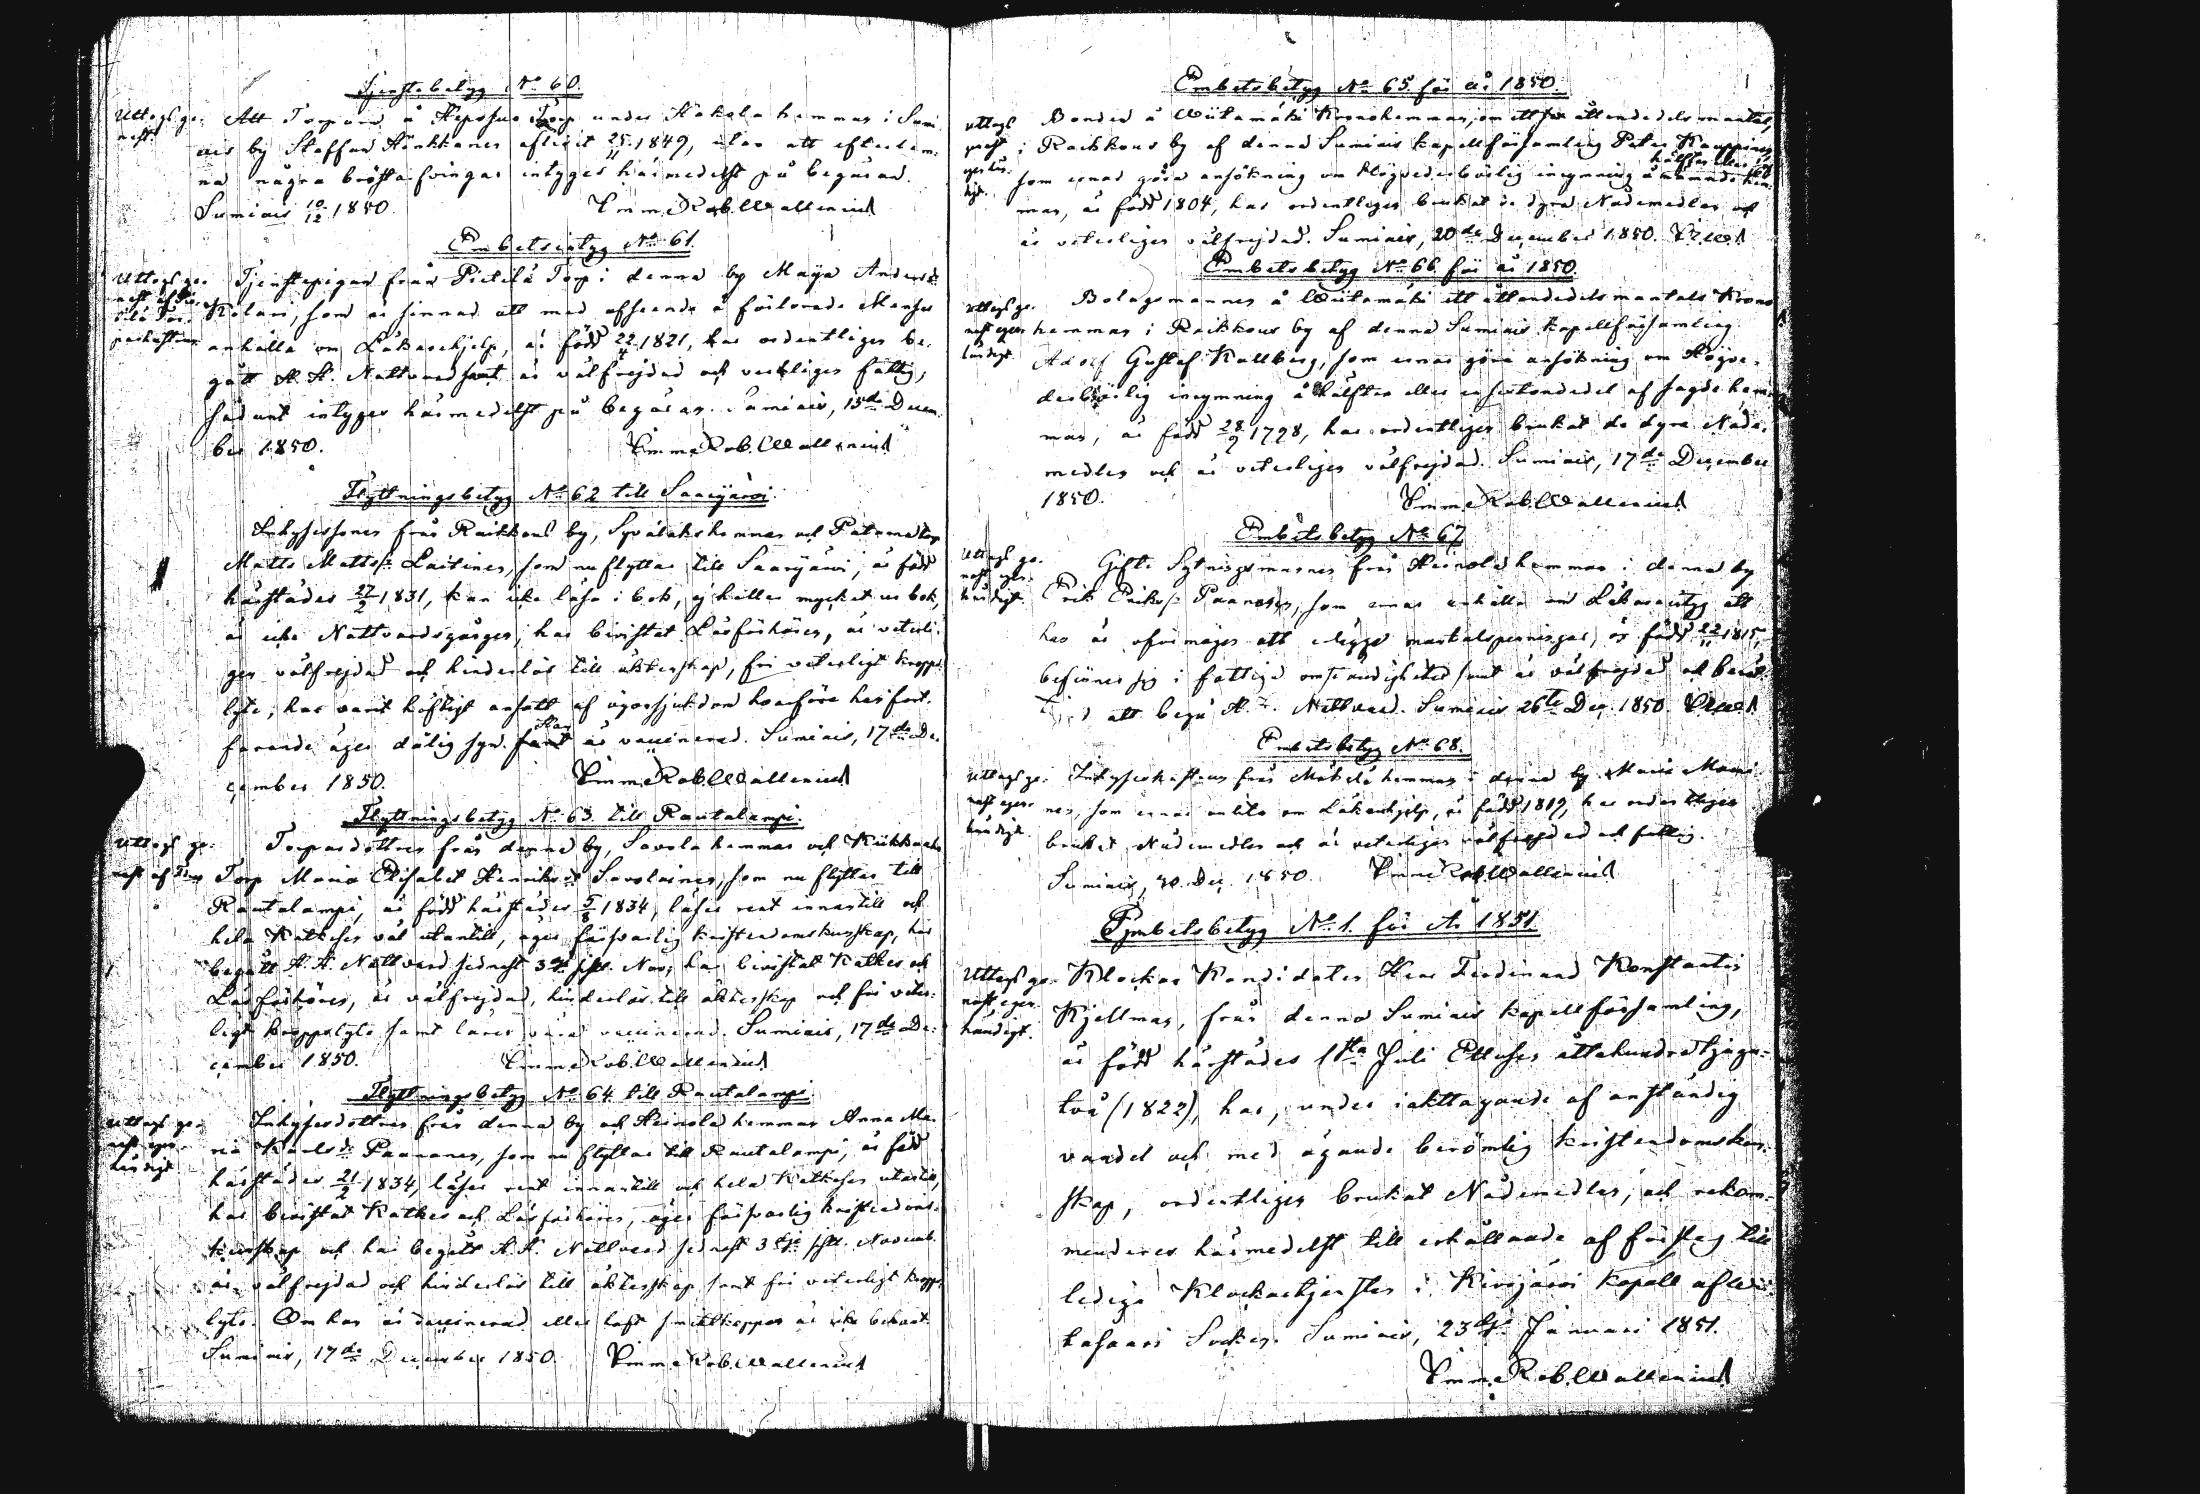 Tjenstebetyg No 60.
Uttagit ge-
nast.
Att Torparen å Heposuo Torp under Kokola hemman i Sumi-
ais by Staffan Hänkkanen aflidit 25/11 1849, utan att efterlem-
na några bröstarfvingar intygas härmedelst på begäran.
Sumiais 10/12 1850. Emm. Rob. Wallenius
Embetsintyg No 61
Uttagit ge-
nast af
Tjenstepigan från Pietilä Torp i denna by Maija Andersdr
Kolari, som är sinnad att med afseende å förlorade Menses
anhålla om Läkarehjelp, är född 22/4 1821, har ordentligen be-
gått H. H. Nattvard samt är välfrejdad och verkligen fattig,
sådant intygas härmedelst på begäran. Sumiais, 13de Decem-
ber 1850. Emm. Rob. Wallenius
Flyttningsbetyg No 62 till Saarijärvi.
Inhysessonen från Raikkaus by, Syvälaks hemman och Patama torp
Matts Mattss: Laitinen, som nu flyttar till Saarijärvi, är född
härstädes 27/2 1831, kan icke läsa i bok, ej heller mycket ur bok,
är icke Nattvardsgången, har bevistat Läsförhören, är veterli-
gen välfrejdad och hinderlös till äktenskap, fri veterligt kropps-
lyte, har varit häftigt ansatt af ögonsjukdom hvarföre han fort-
farande äger dålig syn. Han är vaccinerad. Sumiais, 17de De-
cember 1850. Emm. Rob. Wallenius
Flyttningsbetyg No 63 till Rautalampi.
Uttagit ge-
nast af
Torparedottren från denna by, Savola hemman och
Torp Maria Elisabet Henriksdr Savolainen, som nu flyttar till
Rautalampi, är född härstädes 5/8 1834, läser rent innantill och
hela Katkesen väl utantill, äger försvarlig kristendomskunskap, har
begått H. H. Nattvard sednast 3dje sistl. Nov, har bevistat Katkes och
Läsförhören, är välfrejdad, hinderlös till äktenskap och fri veter-
ligt kroppslyte samt lärer vara vaccinerad. Sumiais, 17de De-
cember 1850. Emm. Rob. Wallenius
Flyttningsbetyg No 64 till Rautalampi
Uttagit ge-
nast egen-
händigt
Inhysesdottren från denna by och Heinola hemman Anna Ma-
ria Karlsdr Paananen, som nu flyttar till Rautalampi, är född
härstädes 21/2 1834, läser rent innantill och hela Katkesen utantill,
har bevistat Katkes och Läsförhören, äger försvarlig kristendoms-
kunskap och har begått H. H. Nattvard sednast 3dje sistl. Novemb.
är välfrejdad och hinderlös till äktenskap samt fri veterligt kropps-
lyte. Om hon är vaccinerad eller haft smittkoppor är icke bekant.
Sumiais, 17de December 1850. Emm. Rob. Wallenius
Embetsbetyg No 65 för år 1850.
uttagit
genast
egenhän-
digt.
Bonden å Wiitamäki Kronohemman, om ett åttondedels mantal,
i Raikkaus by af denna Sumiais kapellförsamling Peter Kauppinen
som ernar göra ansökning om Högvederbörlig inrymning å hälften eller 1/16 nämnde hem-
man, är född 1804, har ordentligen brukat de dyra Nådemedlen och
är veterligen välfrejdad. Sumiais, 20de December 1850.
Embetsbetyg No 66 för år 1850.
Uttagit ge-
nast egen-
händigt.
Bolagsmannen å Wiitamäki ett åttondedels mantals Krono
hemman i Raikkaus by af denna Sumiais kapellförsamling
Adolf Gustaf Kullberg, som ernar göra ansökning om Högve-
derbörlig inrymning å hälften eller en sextondedel af sagde hem-
man, är född 28/9 1798, har ordentligen brukat de dyra Nåde-
medlen och är veterligen välfrejdad. Sumiais, 17de December
1850. Emm. Rob. Wallenius
Embetsbetyg No 67
Uttagit ge-
nast egen-
händigt.
Gifte Sytningsmannen från Heinola hemman i denna by
Erik Erikss: Paananen, som ernar anhålla om Läkareintyg att
han är oförmögen att utlägga mantalspenningar, är född 22/11 1815,
befinner sig i fattiga omständigheter samt är välfrejdad och berät-
tigad att begå H. H. Nattvard. Sumiais 26te Dec. 1850.
Embetsbetyg No 68.
Uttagit ge-
nast egen-
händigt.
Inhyseshustrun från Mäkelä hemman i denna by Maria
nen, som ernar anlita om Läkarehjelp, är född 1819, har ordentligen
brukat Nådemedlen och är veterligen välfrejdad och fattig.
Sumiais, 30 Dec. 1850. Emm. Rob. Wallenius
Embetsbetyg No 1. för År 1851.
Uttagit ge-
nast egen-
händigt.
Klockar Kandidaten Herr Ferdinand Konstantin
Kjellman, från denna Sumiais kapellförsamling,
är född härstädes 1sta Juli Ettusen åttahundratjugu-
två (1822), har, under iakttagande af anständig
vandel och med ägande berömlig kristendomskun-
skap, ordentligen brukat Nådemedlen, och rekom-
menderas härmedelst till erhållande af förslag till
lediga Klockaretjensten i Kivijärvi kapell af Wii-
tasaari Socken. Sumiais, 23dje Januari 1851.
Emm. Rob. Wallenius